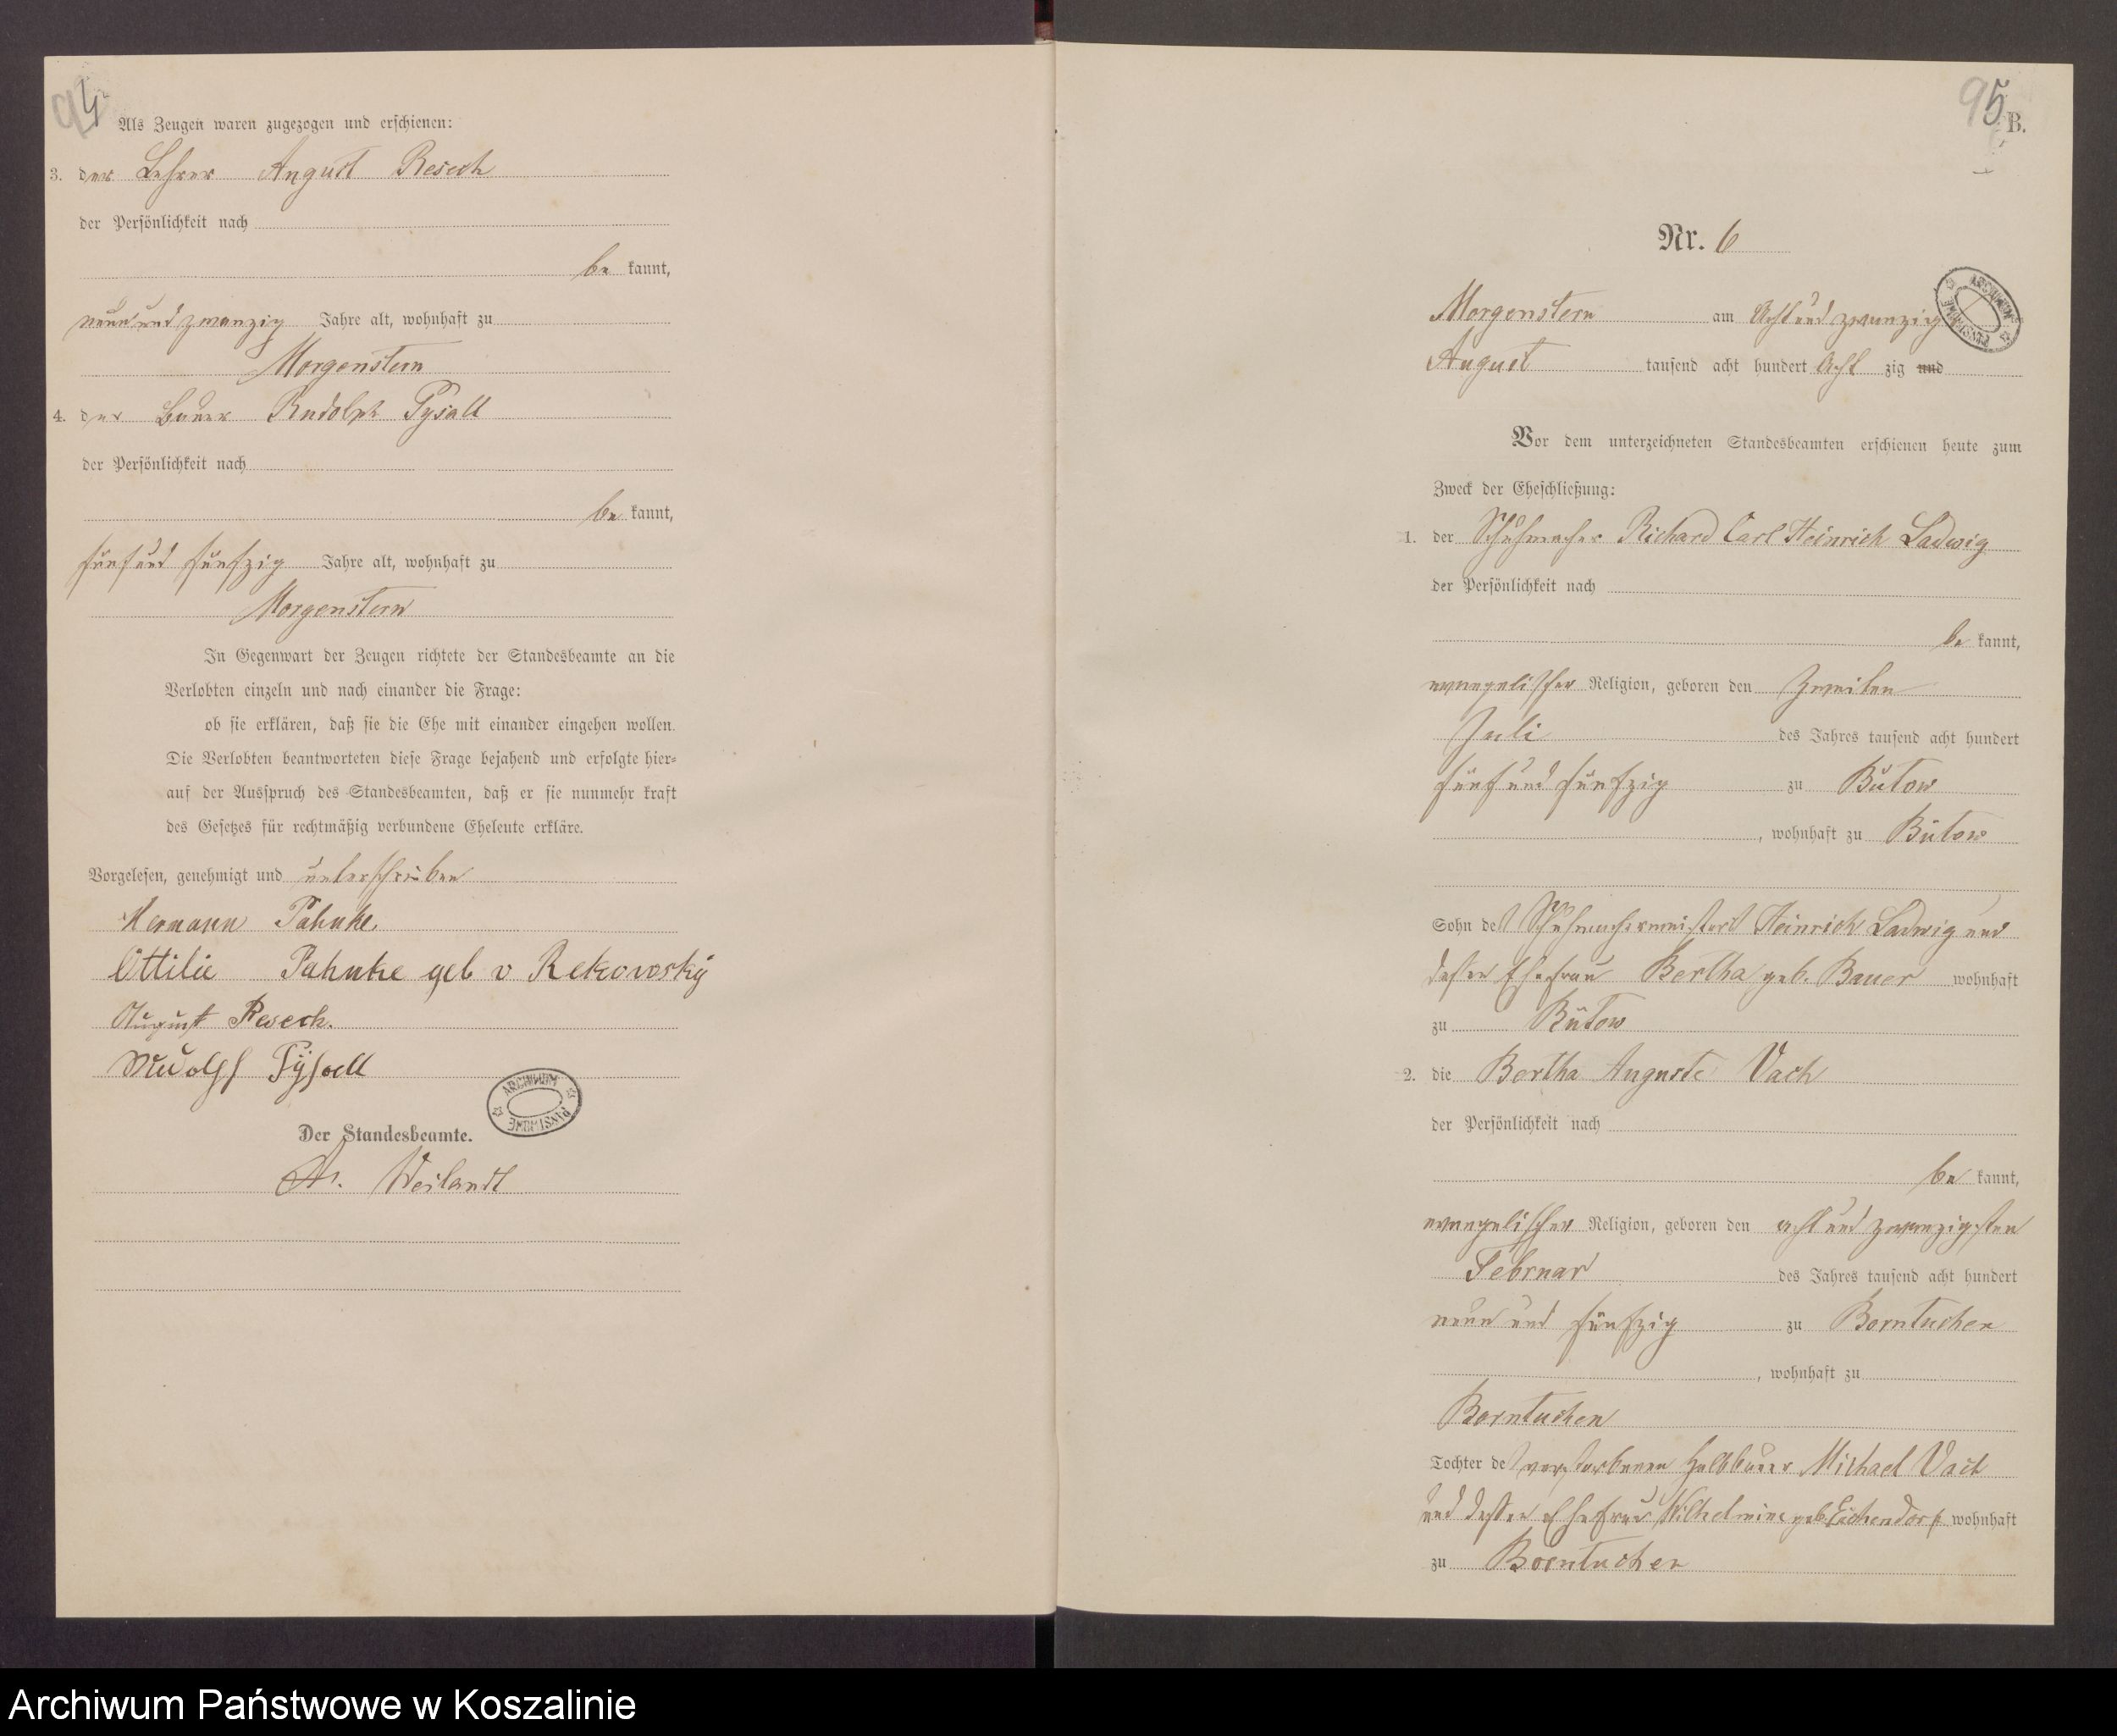 94
Als Zeugen waren zugezogen und erschienen:
3. der Lehrer August Resech
der Persönlichkeit nach
be kannt,
neun und zwanzig Jahre alt, wohnhaft zu
Morgenstern
4. der Bauer Rudolph Pysall
der Persönlichkeit nach
be kannt,
fünf und fünfzig Jahre alt, wohnhaft zu
Morgenstern
In Gegenwart der Zeugen richtete der Standesbeamte an die
Verlobten einzeln und nach einander die Frage:
ob sie erklären, daß sie die Ehe mit einander eingehen wollen.
Die Verlobten beantworteten diese Frage bejahend und erfolgte hier-
auf der Ausspruch des Standesbeamten, daß er sie nunmehr kraft
des Gesetzes für rechtmäßig verbundene Eheleute erkläre.
Vorgelesen, genehmigt und unterschrieben
Hermann Pahnke
Ottilie Pahnke geb v Rekowosky
August Resech.
Rudolf Pysall
ARCHIWUM PAŃSTWOWE
Der Standesbeamte.
Weilandt
95
B.
Nr. 6
ARCHIWUM PAŃSTWOWE
Morgenstern am Acht und zwanzig
August tausend acht hundert Acht zig und
Vor dem unterzeichneten Standesbeamten erschienen heute zum
Zweck der Eheschließung:
1. der Schuhmacher Richard Carl Heinrich Ladwig
der Persönlichkeit nach
be kannt,
evangelischer Religion, geboren den Zweiten
Juli des Jahres tausend acht hundert
fünf und fünfzig zu Bütow
, wohnhaft zu Bütow
Sohn des Schuhmachermeisters Heinrich Ladwig und
dessen Ehefrau Bertha geb. Bauer wohnhaft
zu Bütow
2. die Bertha Auguste Vach
der Persönlichkeit nach
be kannt,
evangelischer Religion, geboren den acht und zwanzigsten
Februar des Jahres tausend acht hundert
neun und fünfzig zu Borntuchen
, wohnhaft zu
Borntuchen
Tochter des verstorbenen Halbbauer Michael Vach
und dessen Ehefrau Wilhelmine geb. Eichendorf wohnhaft
zu Borntuchen
Archiwum Państwowe w Koszalinie